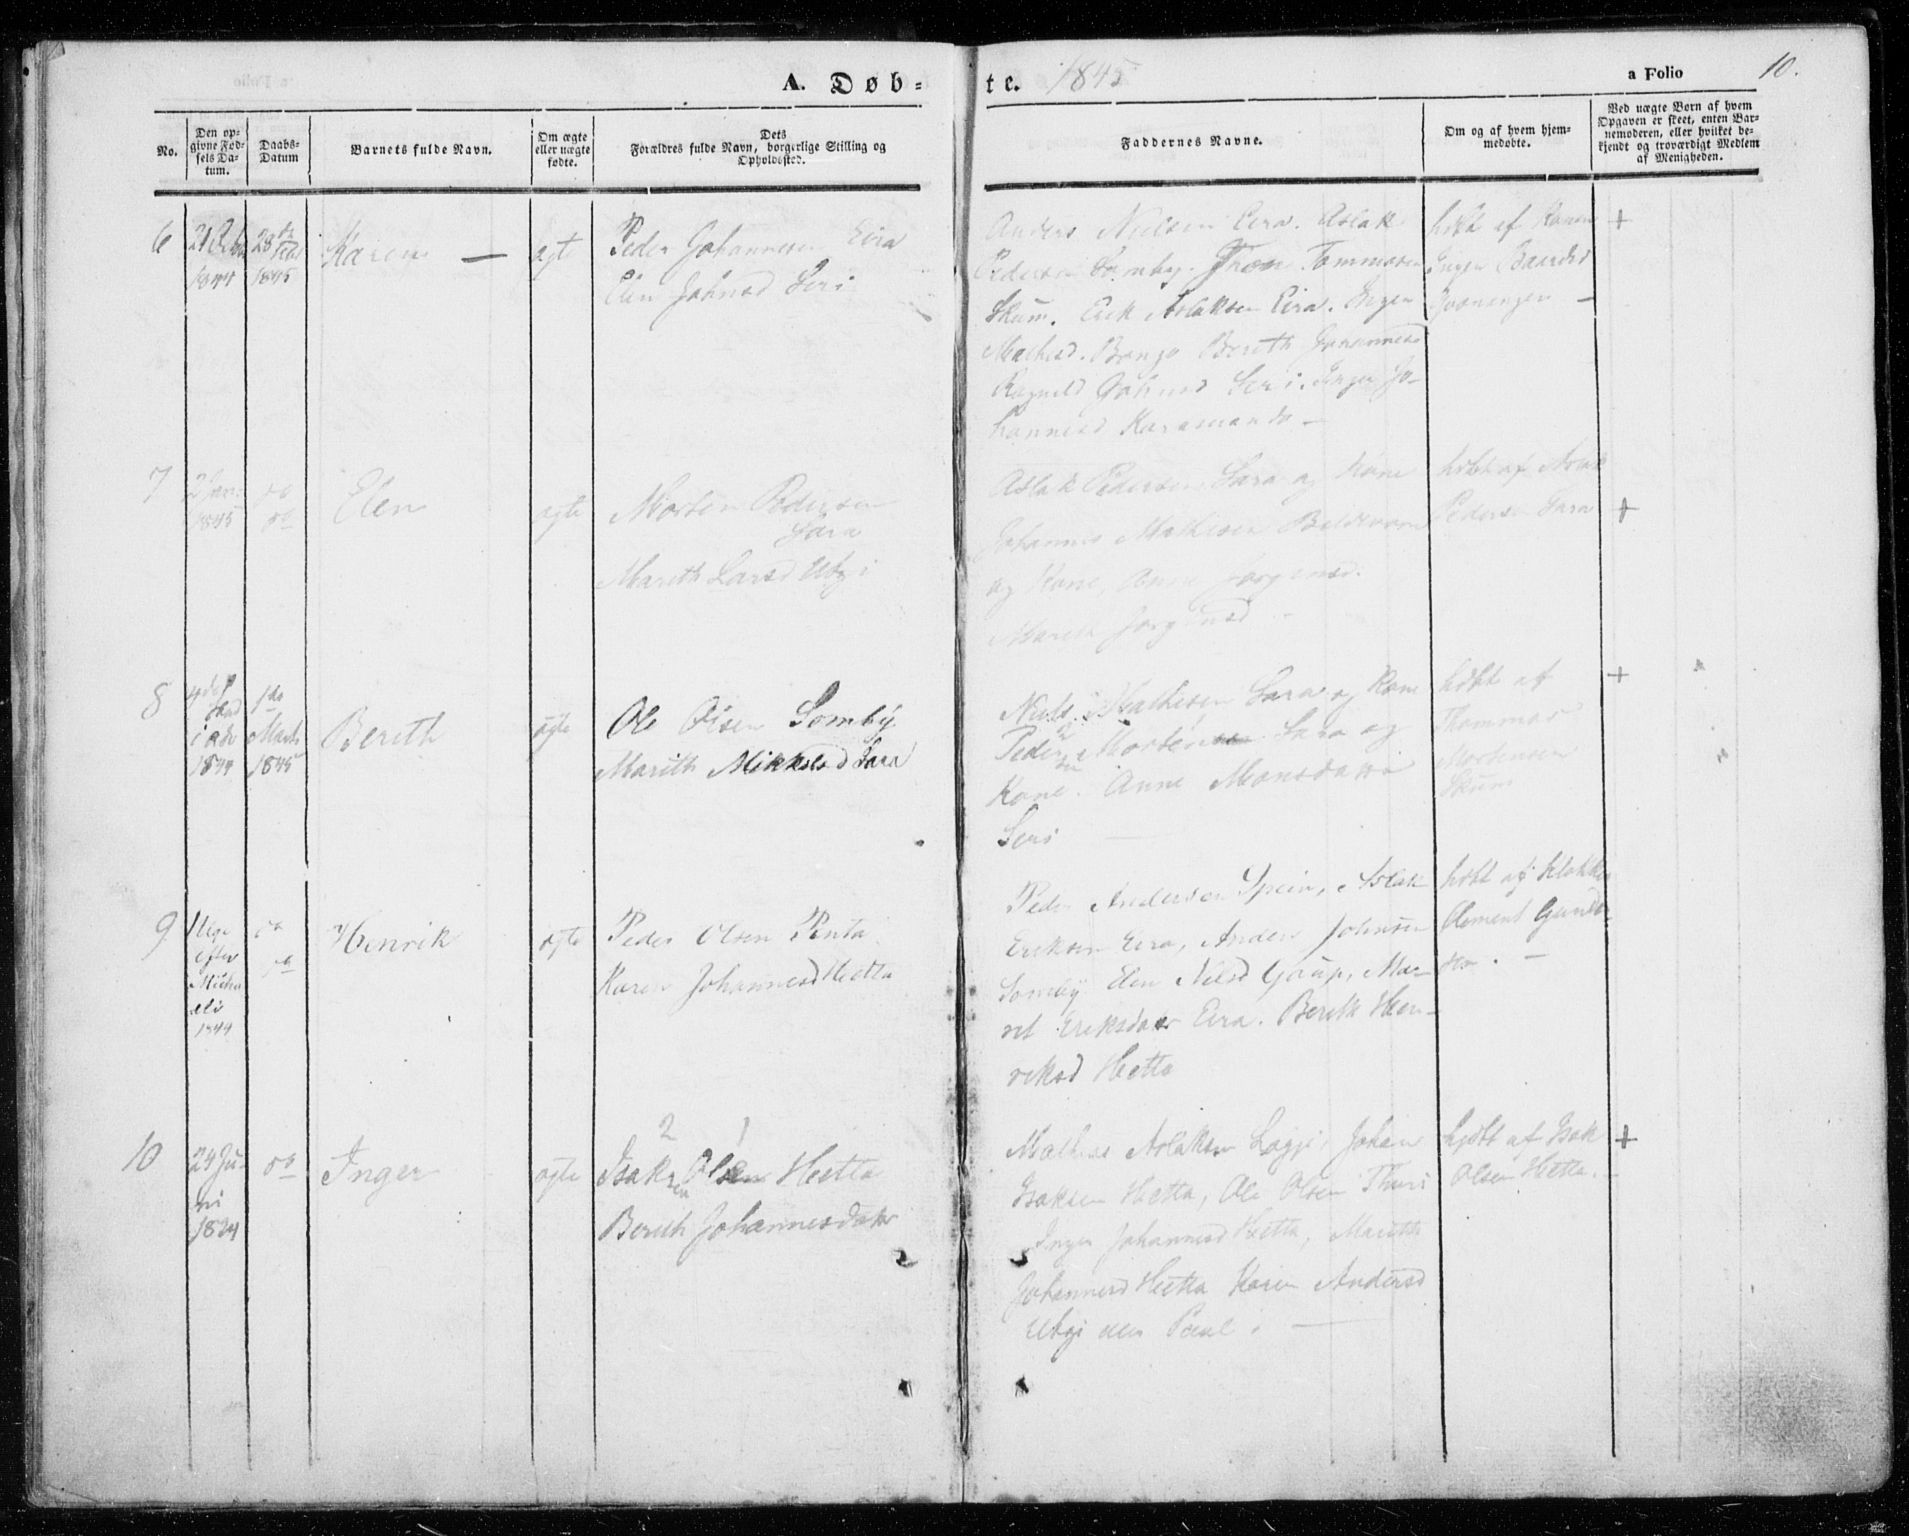 A. Døb=te. 1845
a Folio 10.
No.
Den op=
givne Fød=
sels Da=
tum.
Daabs=
Datum
Barnets fulde Navn.
Om ægte
eller uægte
fødte.
Dets
Forældres fulde Navn, borgerlige Stilling og
Opholdssted.
Faddernes Navne.
Om og af hvem hjem=
medøbte.
Ved uægte Børn af hvem
Opgaven er skeet, enten Bar=
nemoderen, eller hvilket be=
kjendt og troværdigt Medlem
af Menigheden.
6
1844
28
1845
Karen —
ægte
Peder Johannesen Eira
Elen Johnsd Seri
Anders Nielsen Eira. Aslak
Pedersen Somby. Tommesen
Skum. Erik Aslaksen Eira. Inger
Mathisd. Bongo Bereth Johannesd
Ragnild Johnsd Seri. Inger Jo-
hannesd
hdbt af Konen
Inger
+
7
2 Jan:
1845
do
do
Elen
ægte
Morten Pedersen
Sara
Mareth Larsd Utzi
Aslak Pedersen Sara og Kone
Johannes Mathisen
og Kone, Anne Jørgensd.
Maren Jørgensd —
hdbt af Aslak
Pedersen Sara
+
8
4
1844
1ste
Marts
1845
Bereth
ægte
Ole Olsen Somby
Marith Mikkelsd Sara
Niels Mathisen Sara og Kone
Peder Morten Sara og
Kone. Anne Monsdatter
Seri —
hdbt af
Thommas
Mortensen
Skum
+
9
1 Uge
efter
Micha
elis
1844
do
do
Henrik
ægte
Peder Olsen Penta
Karen Johannesd Hetta
Peder Andersen Spein, Aslak
Eriksen Eira, Anders Johnsen
Somby Elen Nilsd Gaup, Ma-
ret Eriksdatter Eira. Berith Hen-
riksd Hetta
hdbt af Klokker
Clement Gunder
sen. —
10
24 Ju-
ni
do
Inger
ægte
2 1
Isaksen Olsen Hetta
Bereth Johannesdatter
Mathis Aslaksen Logje, Johan
Isaksen Hetta, Ole Olsen Thuri
Inger Johannesd Hetta, Marethe
Johannesd Hetta Karen Andersd
Utzi Paul. —
hjdbt af Isak
Olsen Hetta. —
+